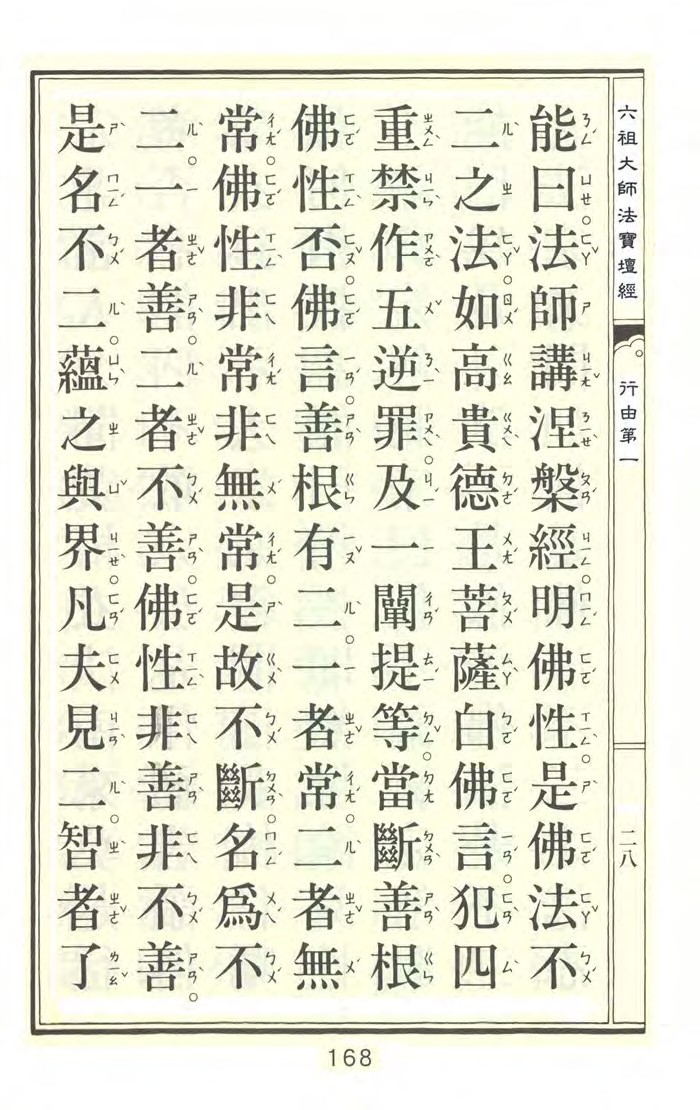 六祖大師法寶壇經 行由第一 二八
能曰。法師講涅槃經。明佛性。是佛法不
二之法。如高貴德王菩薩白佛言。犯四
重禁作五逆罪。及一闡提等。當斷善根
佛性否。佛言。善根有二。一者常。二者無
常。佛性非常非無常。是故不斷。名爲不
二。一者善。二者不善。佛性非善非不善。
是名不二。蘊之與界。凡夫見二。智者了
168